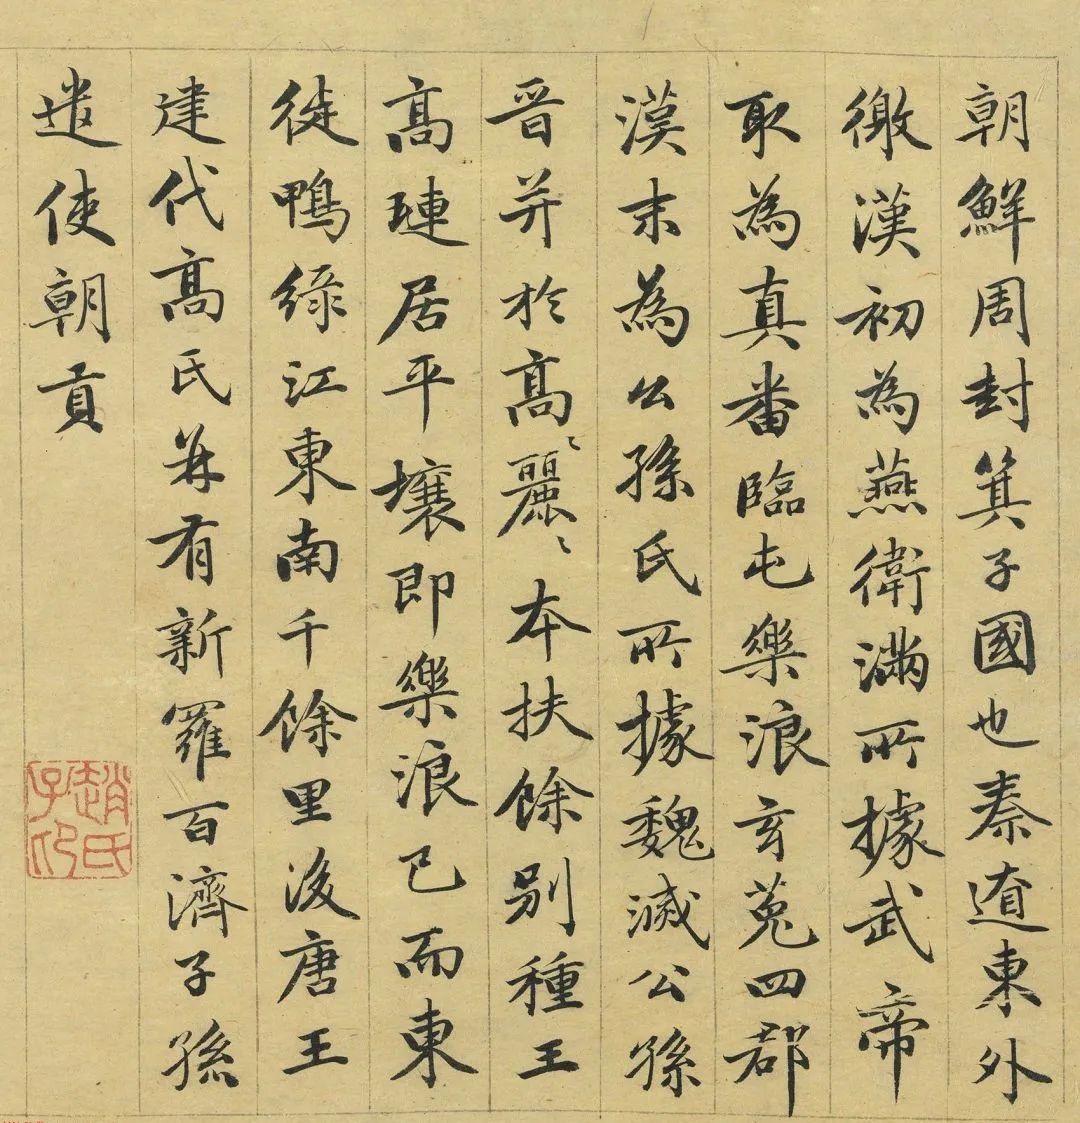 朝鮮周封箕子國也秦遼東外
徼漢初為燕衛滿所據武帝
取為真番臨屯樂浪玄菟四郡
漢末為公孫氏所據魏滅公孫
晉并於高〻麗〻本扶餘別種王
高璉居平壤即樂浪已而東
徙鴨綠江東南千餘里後唐王
建代高氏并有新羅百濟子孫
遣使朝貢
趙氏子昂